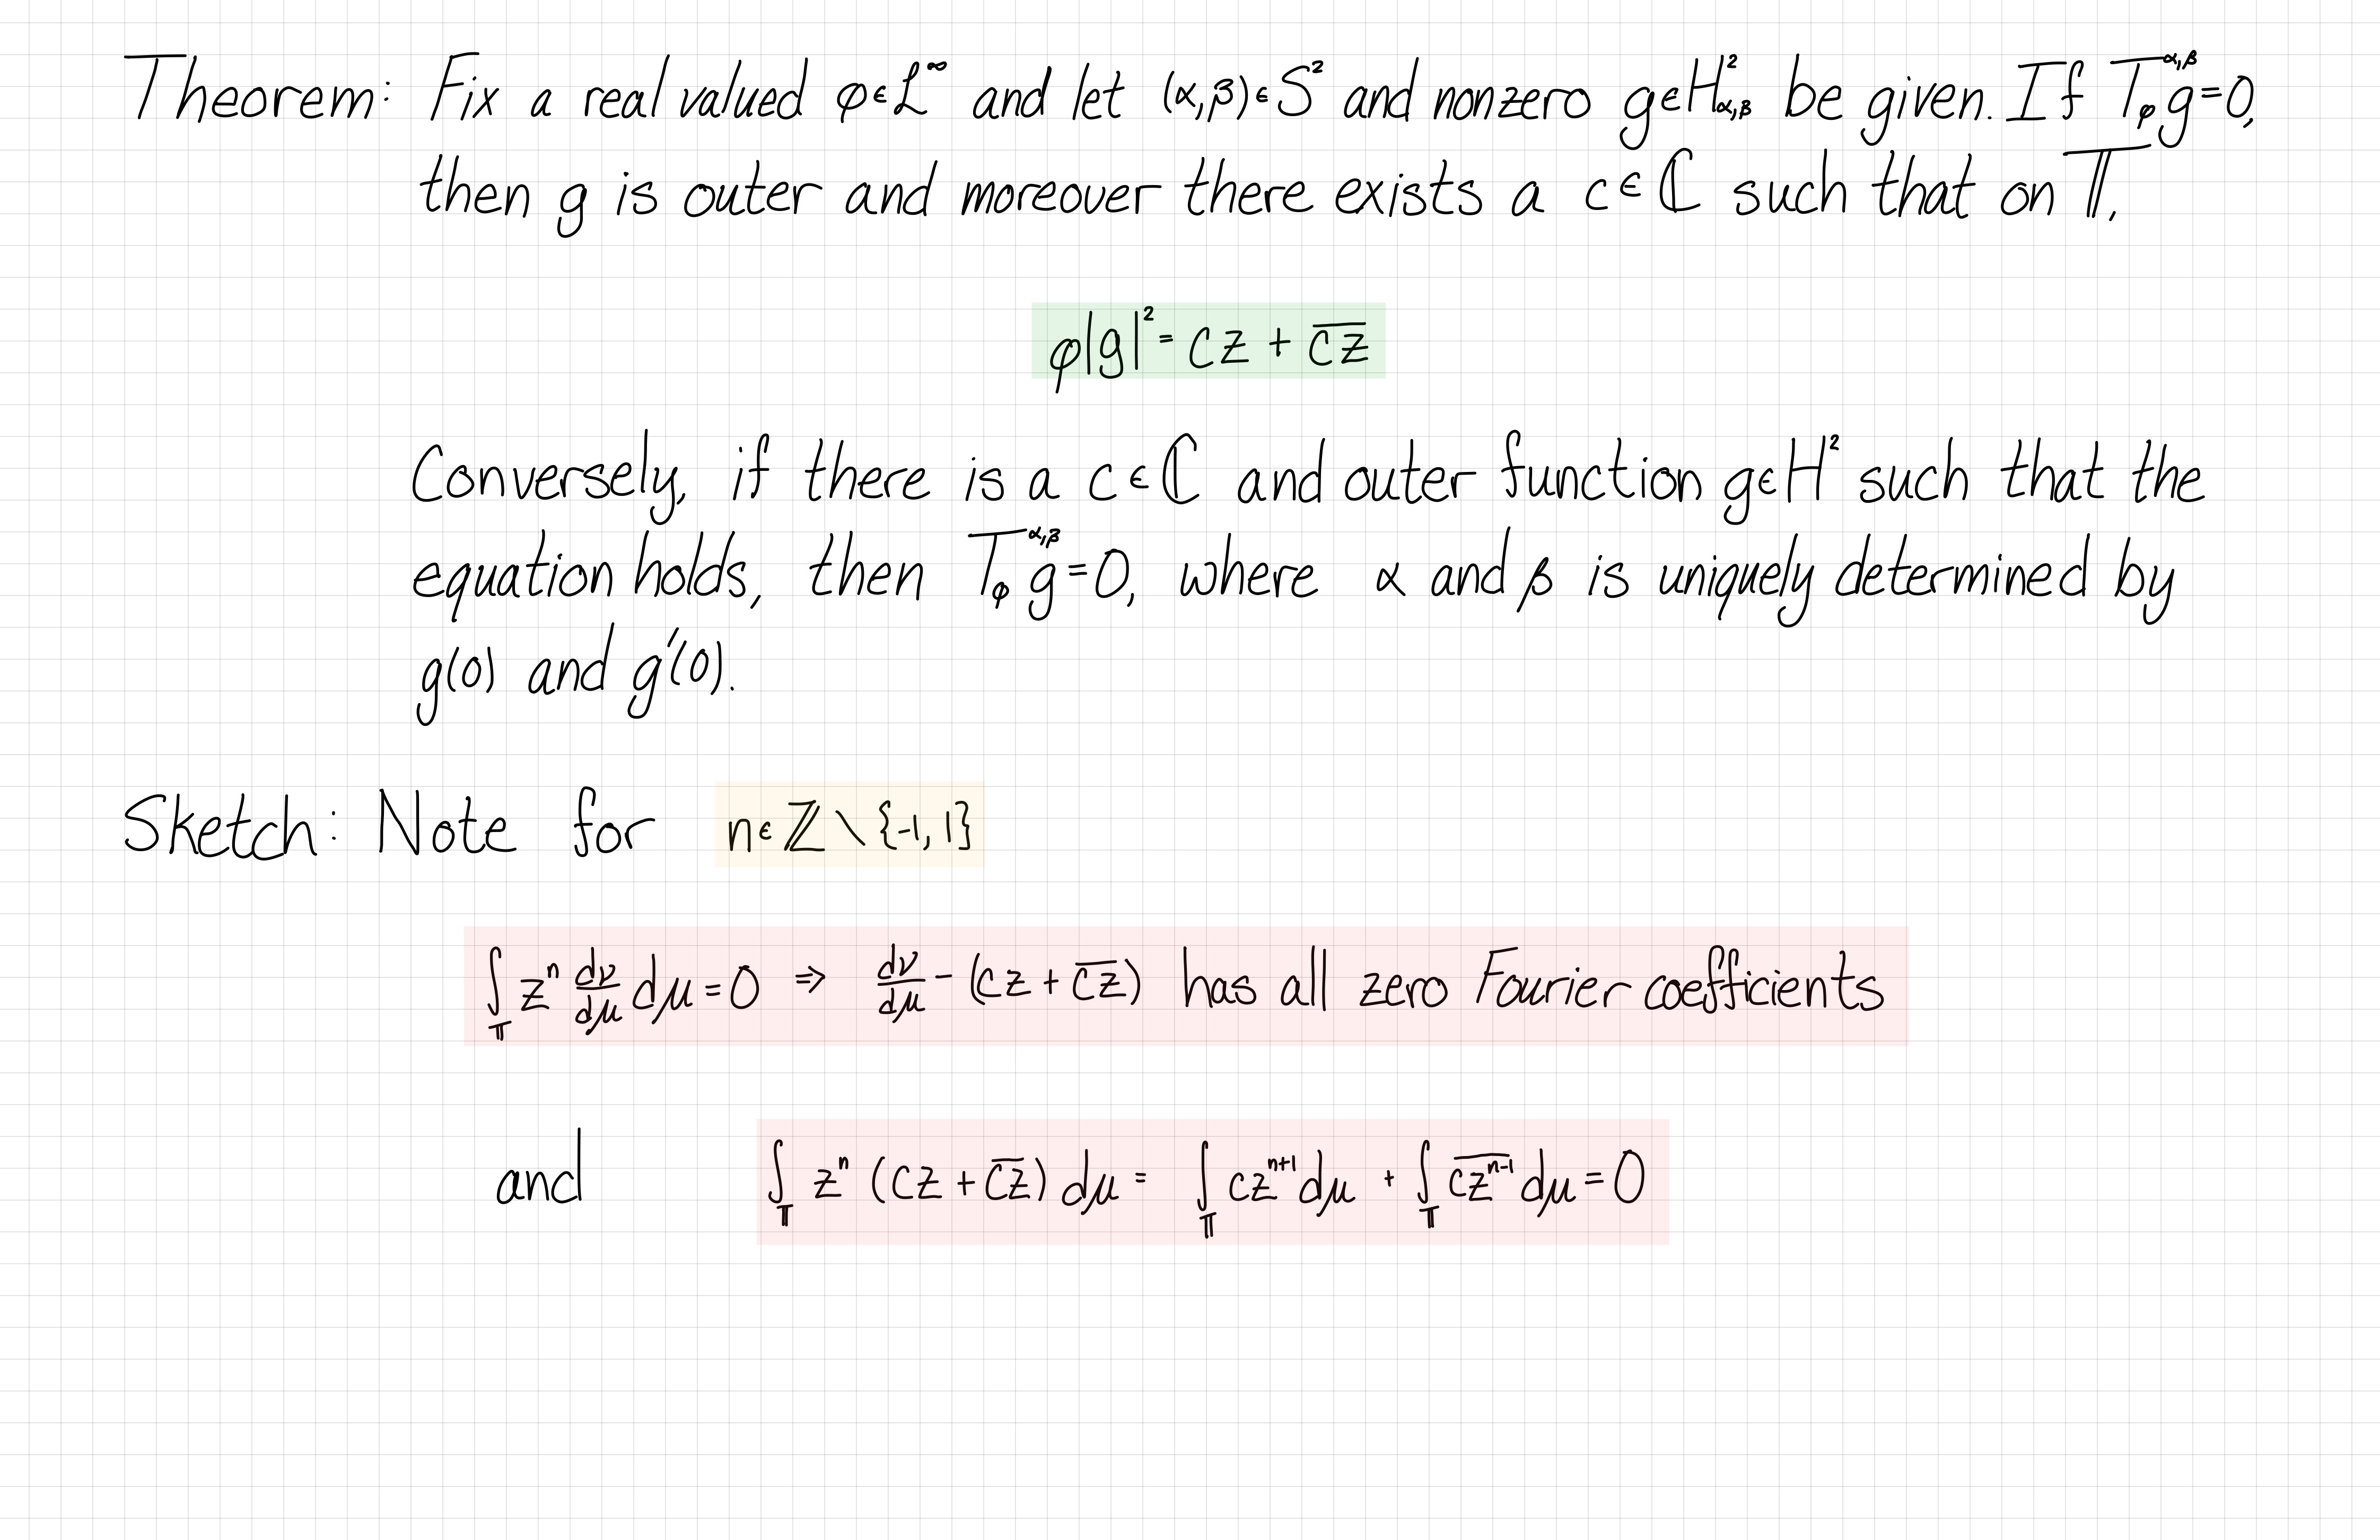 Theorem: Fix a real valued φ∈L^∞ and let (α,β)∈S² and nonzero g∈H²_{α,β} be given. If T_φ^{α,β} g=0,
then g is outer and moreover there exists a c∈ℂ such that on 𝕋,
φ|g|² = cz + \overline{cz}
Conversely, if there is a c∈ℂ and outer function g∈H² such that the
equation holds, then T_φ^{α,β} g=0, where α and β is uniquely determined by
g(0) and g′(0).
Sketch: Note for n∈ℤ∖{-1, 1}
∫_𝕋 z^n \frac{dν}{dμ} dμ = 0 ⇒ \frac{dν}{dμ} - (cz + \overline{cz}) has all zero Fourier coefficients
and ∫_𝕋 z^n (cz + \overline{cz}) dμ = ∫_𝕋 cz^{n+1} dμ + ∫_𝕋 \overline{cz^{n-1}} dμ = 0